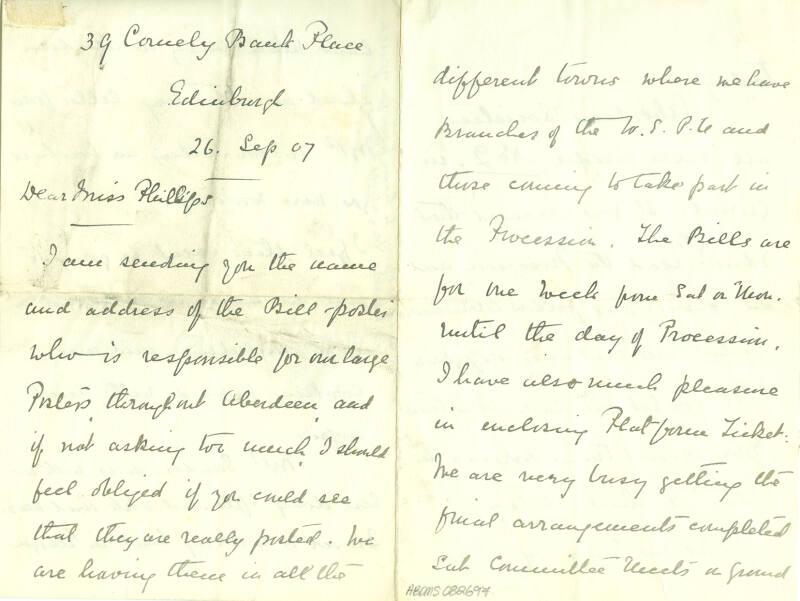 39 Comely Bank Place
Edinburgh
26. Sep 07
Dear Miss Phillips
I am sending you the name
and address of the Bill-poster
who is responsible for our large
Posters throughout Aberdeen, and
if not asking too much I should
feel obliged if you could see
that they are really posted. We
are having them in all the
different towns where we have
Branches of the W.S.P.U and
those coming to take part in
the Procession. The Bills are
for one week from Sat or Mon.
until the day of Procession.
I have also much pleasure
in enclosing Platform Ticket.
We are very busy getting the
final arrangements completed
Sub Committee Meets on Ground
ABDMS 082697